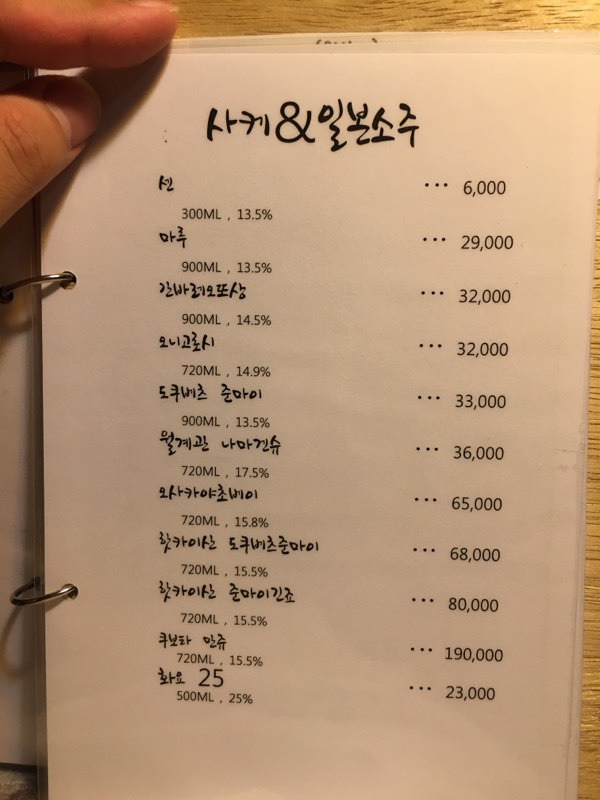 사케&일본소주
센 ... 6,000
300ML , 13.5%
마루 ... 29,000
900ML , 13.5%
간바레오또상 ... 32,000
900ML , 14.5%
오니고로시 ... 32,000
720ML , 14.9%
도쿠베츠 준마이 ... 33,000
900ML , 13.5%
월계관 나마건슈 ... 36,000
720ML , 17.5%
오사카야초베이 ... 65,000
720ML , 15.8%
핫카이산 도쿠베츠준마이 ... 68,000
720ML , 15.5%
핫카이산 준마이긴죠 ... 80,000
720ML , 15.5%
쿠보타 만쥬 ... 190,000
720ML , 15.5%
화요 25 ... 23,000
500ML , 25%